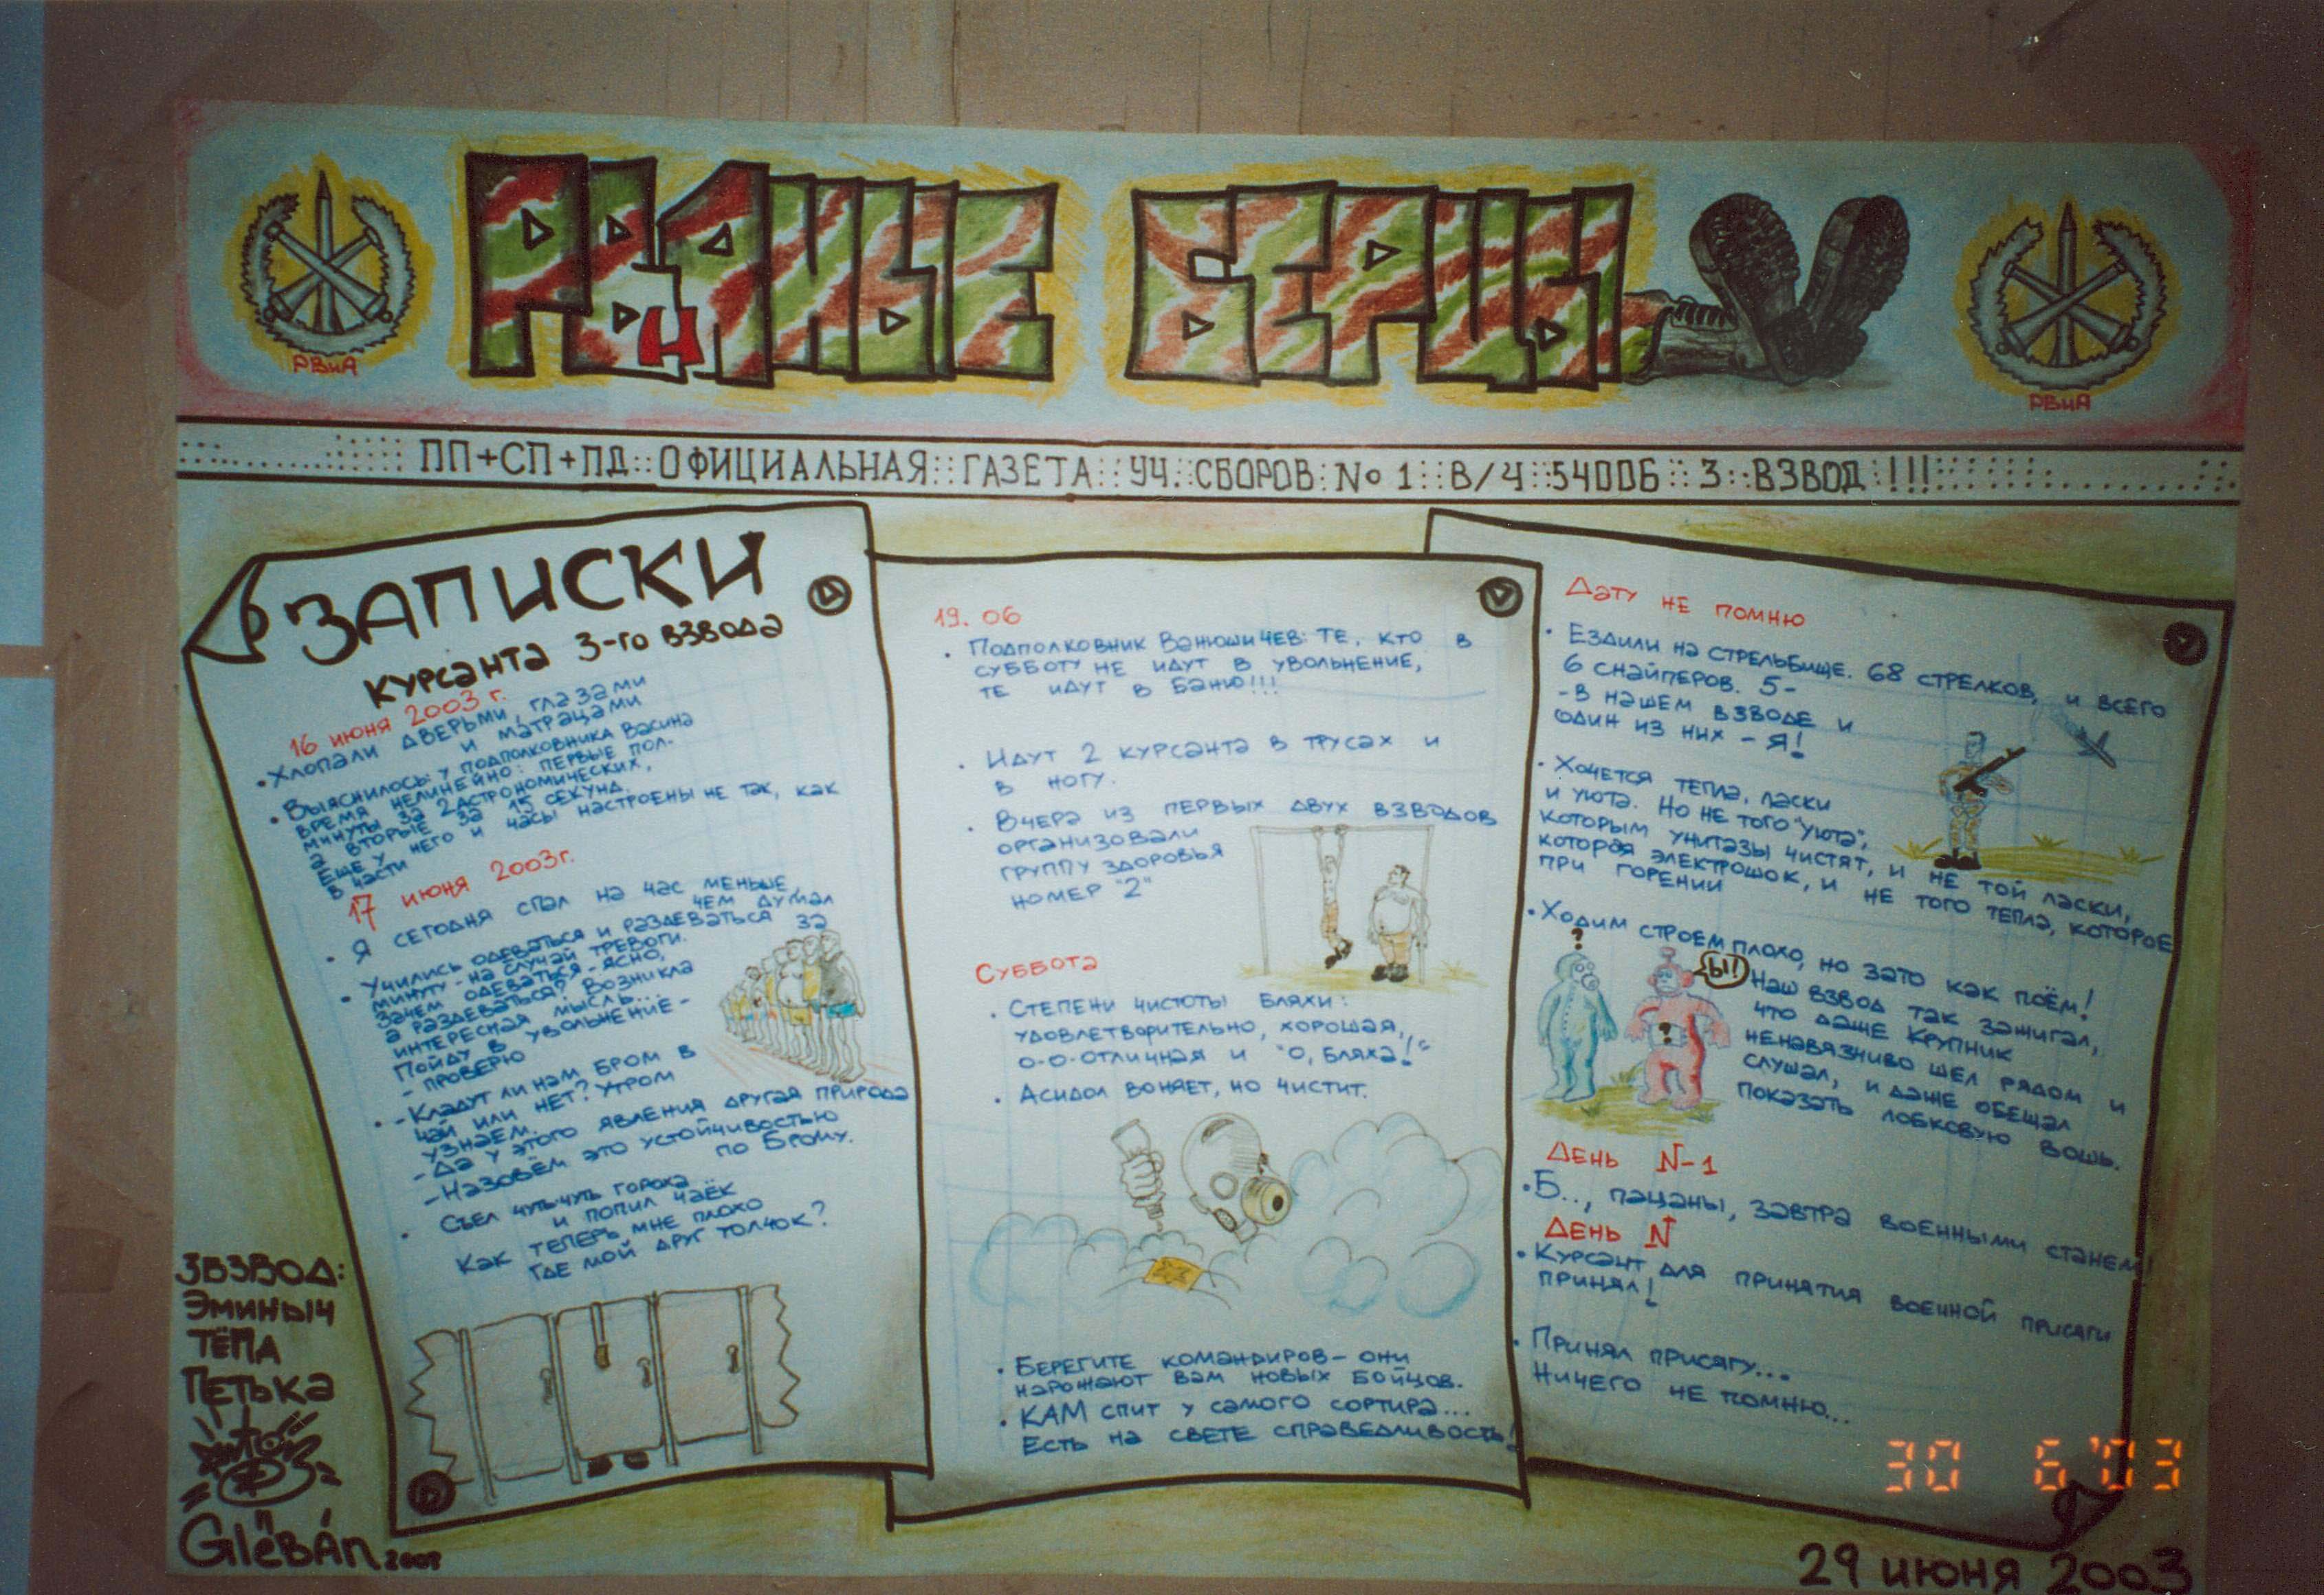 РВиА
РВАНЫЕ БЕРЦЫ
Н
РВиА
ПП+СП+ПД::ОФИЦИАЛЬНАЯ::ГАЗЕТА::УЧ.::СБОРОВ:№1::В/Ч::54006::3::ВЗВОД:!!!
ЗАПИСКИ
КУРСАНТА 3-ГО ВЗВОДА
16 июня 2003 г.
• Хлопали дверьми, глазами
и матрацами
• Выяснилось: у подполковника Васина
время нелинейно: первые пол-
минуты за 2 астрономических,
а вторые за 15 секунд.
Еще у него и часы настроены не так, как
в части
17 июня 2003г.
• Я сегодня спал на час меньше,
чем думал
• Учились одеваться и раздеваться за
минуту - на случай тревоги.
Зачем одеваться - ясно,
а раздеваться? Возникла
интересная мысль...
Пойду в увольнение -
- проверю
• - Кладут ли нам бром в
чай или нет? Утром
узнаем.
- Да у этого явления другая природа
- Назовём это устойчивостью
по Брому.
• Съел чуть-чуть гороха
и попил чаёк
Как теперь мне плохо
Где мой друг толчок?
19.06
• Подполковник Ванюшичев: те, кто в
субботу не идут в увольнение,
те идут в баню!!!
• Идут 2 курсанта в трусах и
в ногу.
• Вчера из первых двух взводов
организовали
группу здоровья
номер "2"
Суббота
• Степени чистоты бляхи:
удовлетворительно, хорошая,
о-о-отличная и "О, бляха!"
• Асидол воняет, но чистит.
• Берегите командиров - они
нарожают вам новых бойцов.
• КАМ спит у самого сортира...
Есть на свете справедливость!
Дату не помню
• Ездили на стрельбище. 68 стрелков, и всего
6 снайперов. 5-
- в нашем взводе и
один из них - Я!
• Хочется тепла, ласки
и уюта. Но не того "уюта",
которым унитазы чистят, и не той ласки,
которая электрошок, и не того тепла, которое
при горении
• Ходим строем плохо, но зато как поём!
?
Ы!
?
Наш взвод так зажигал,
что даже Крупник
ненавязчиво шел рядом и
слушал, и даже обещал
показать лобковую вошь.
День N-1
• Б.., пацаны, завтра военными станем!
День N
• Курсант для принятия военной присяги
принял!
• Принял присягу...
Ничего не помню...
3ВЗВОД:
Эминыч
Тёпа
Петька
Glёbán 2003
30 6'03
29 июня 2003